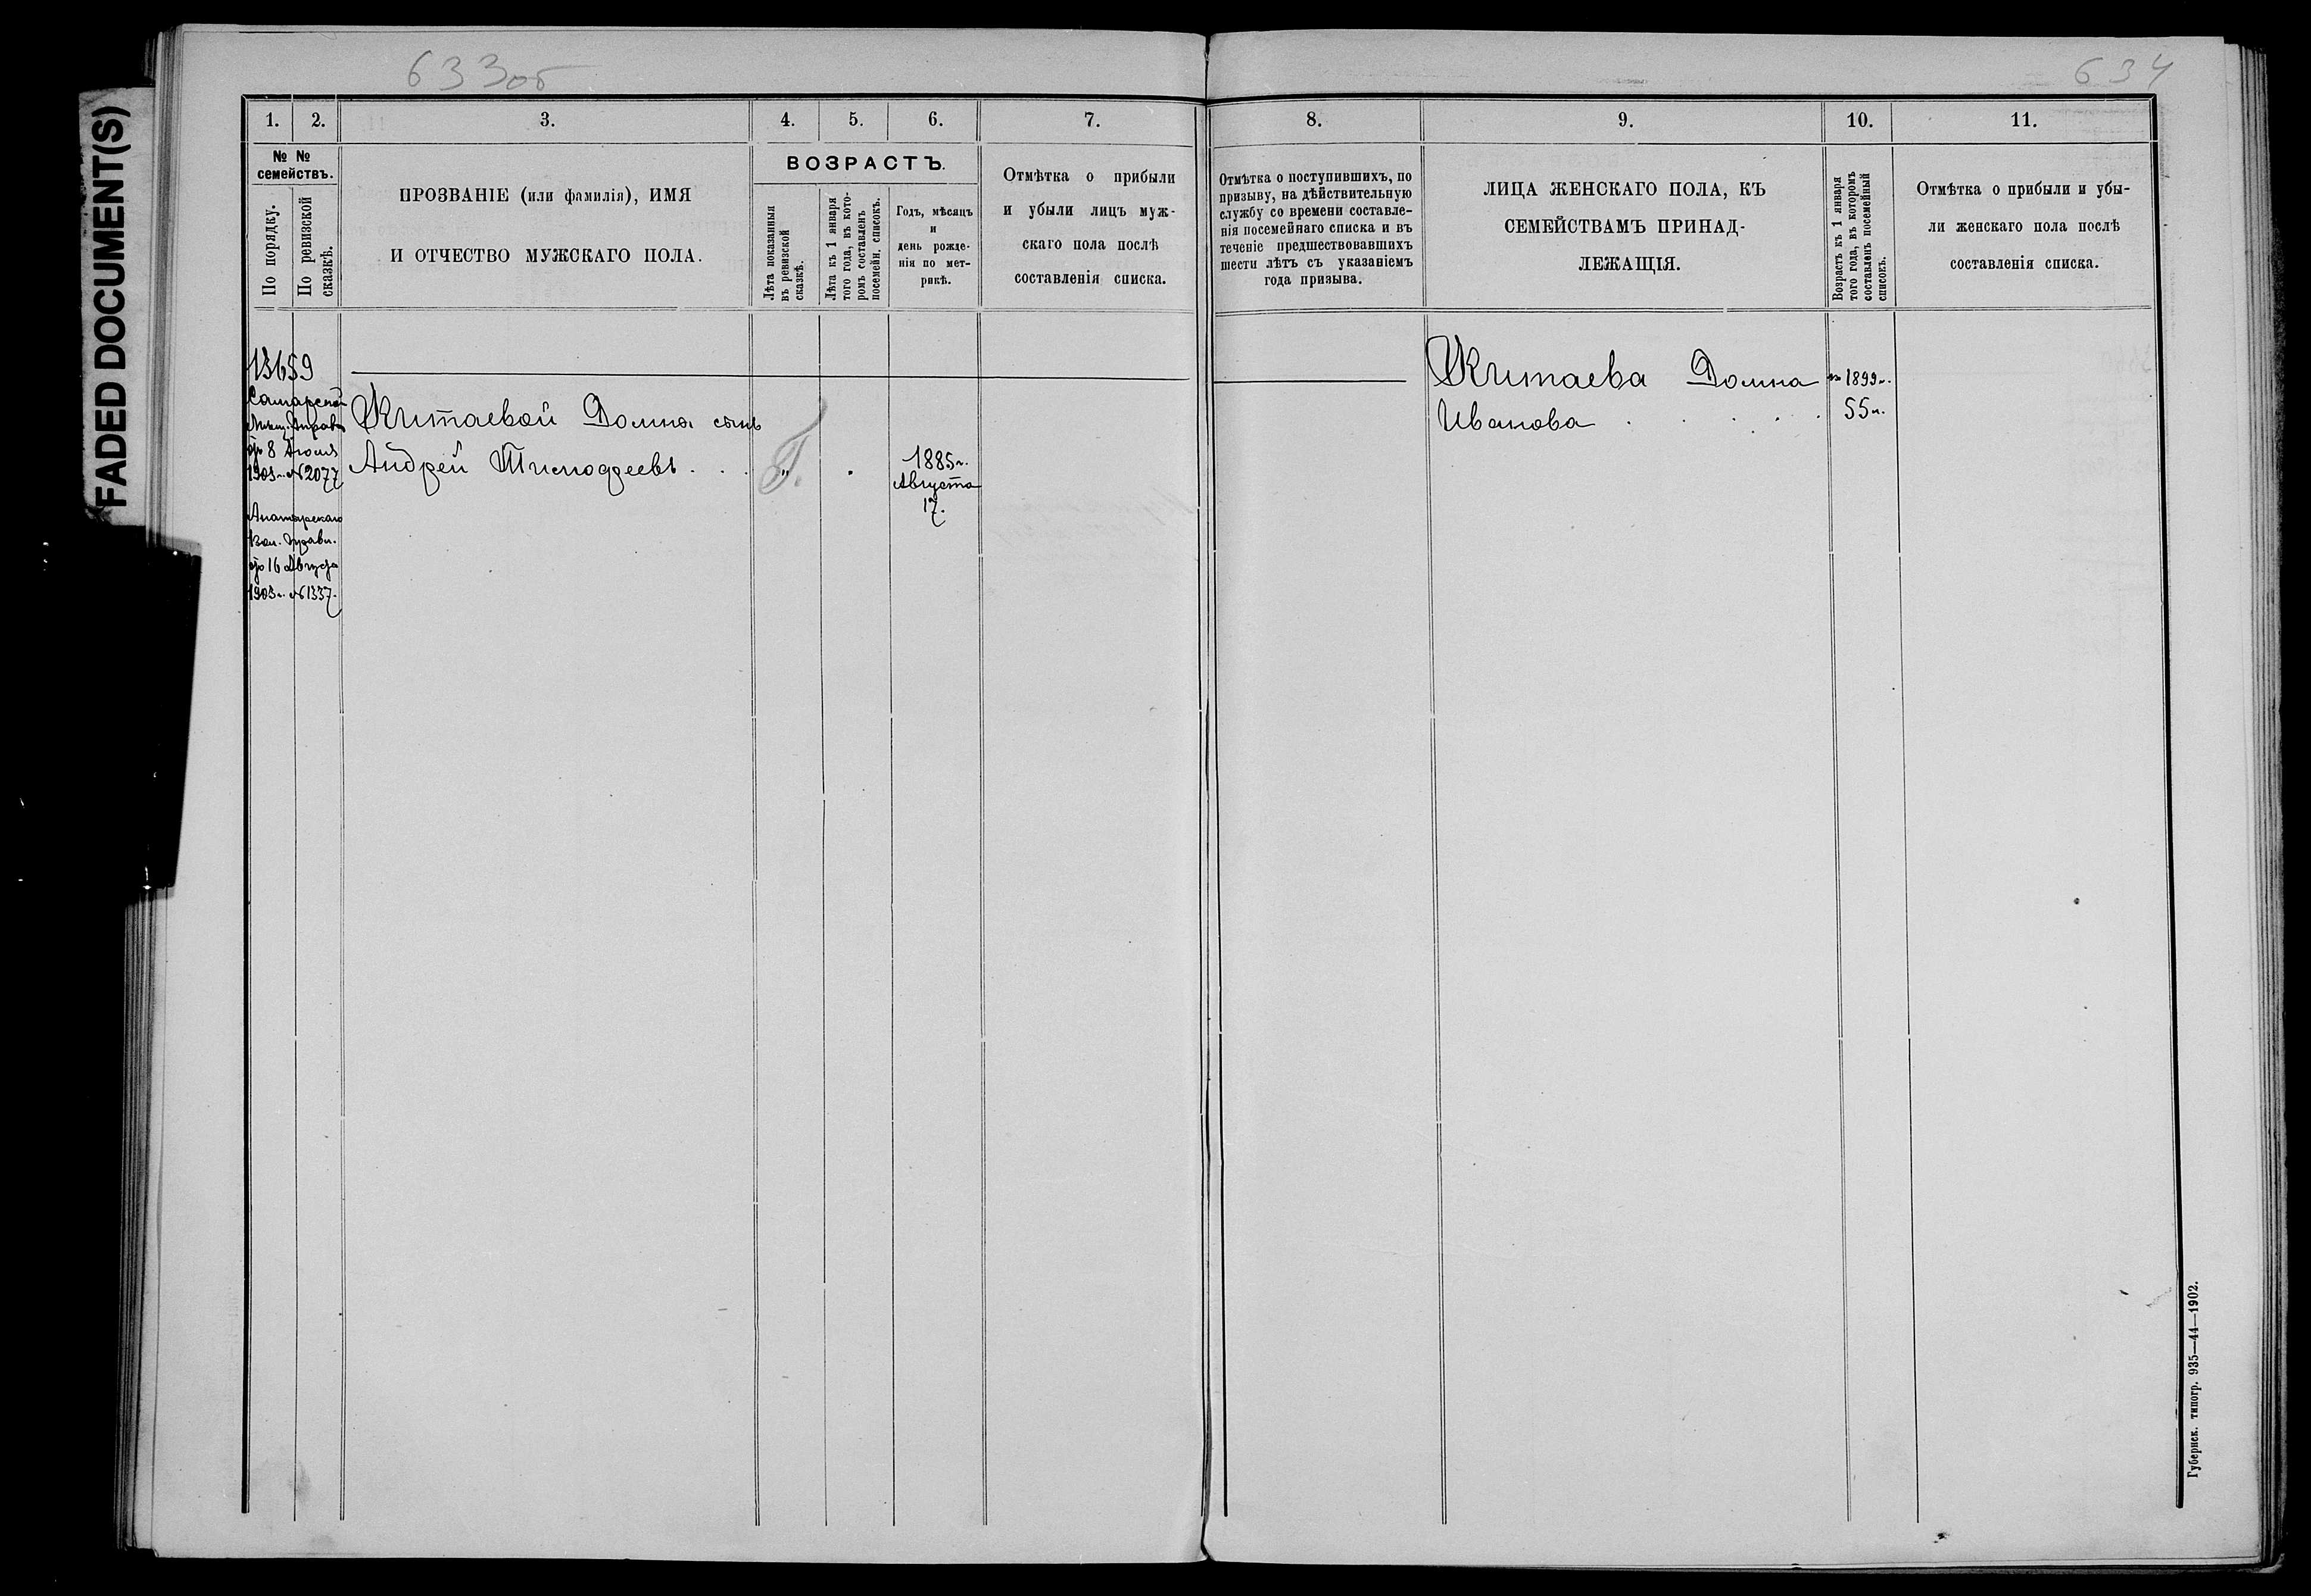 FADED DOCUMENT(S)
633об
634
1.
2.
3.
4.
5.
6.
7.
8.
9.
10.
11.
№ №
семействъ.
По порядку.
По ревизской
сказкѣ.
ПРОЗВАНІЕ (или фамилія), ИМЯ
И ОТЧЕСТВО МУЖСКАГО ПОЛА.
ВОЗРАСТЪ.
Лѣта показанныя
въ ревизской
сказкѣ.
Лѣта къ 1 января
того года, въ кото-
ромъ составленъ
посемейн. списокъ.
Годъ, мѣсяцъ
и
день рожде-
нія по мет-
рикѣ.
Отмѣтка о прибыли
и убыли лицъ муж-
скаго пола послѣ
составленія списка.
Отмѣтка о поступившихъ, по
призыву, на дѣйствительную
службу со времени составле-
нія посемейнаго списка и въ
теченіе предшествовавшихъ
шести лѣтъ съ указаніемъ
года призыва.
ЛИЦА ЖЕНСКАГО ПОЛА, КЪ
СЕМЕЙСТВАМЪ ПРИНАД-
ЛЕЖАЩІЯ.
Возрастъ къ 1 января
того года, въ которомъ
составленъ посемейный
списокъ.
Отмѣтка о прибыли и убы-
ли женскаго пола послѣ
составленія списка.
13659
Самарской
Мѣщ. Управы
8 Іюля
1903 г. № 2077
Вол. Правл.
16 Августа
1903 г. № 1337.
Китаевой Домны сынъ
Андрей Тимофеевъ . . . " .
1885 г.
Августа
17.
Китаева Домна
Иванова . . . . .
1899 г.
55 л.
Губернск. типогр. 935—44—1902.